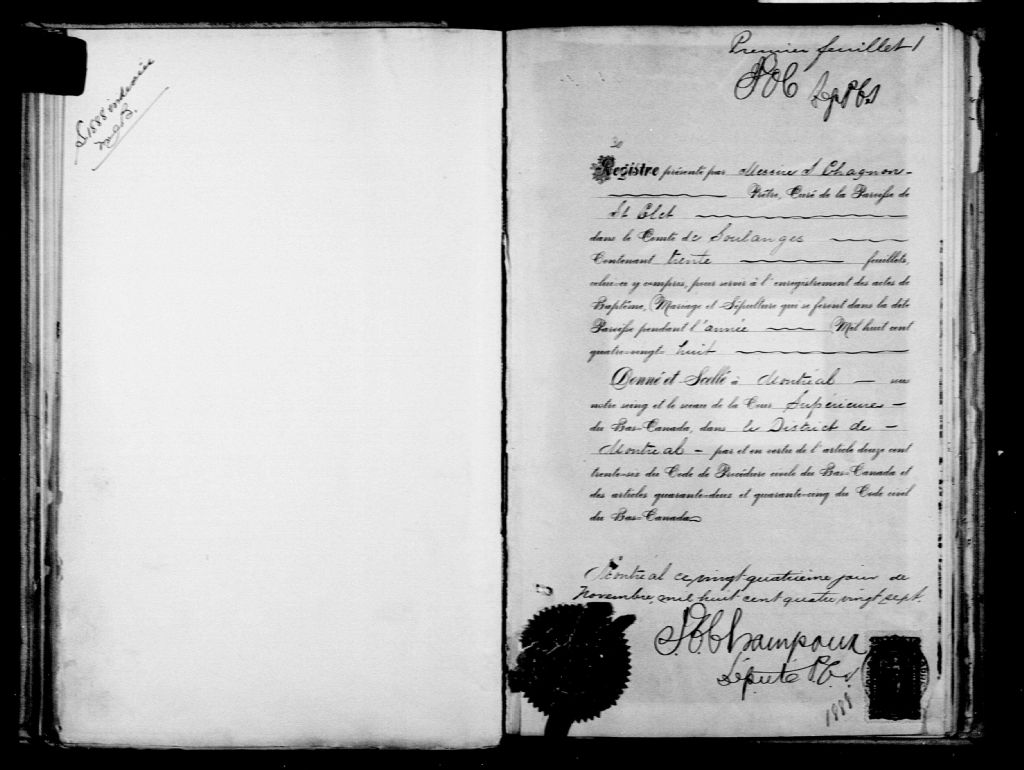 1888
Premier feuillet 1
Dep P C S
30
Registre présenté par Messire S Chagnon
Prêtre, Curé de la Paroisse de
St Clet
dans le Comté de Soulanges
Contenant trente feuillets,
celui-ci y compris, pour servir à l'enregistrement des actes de
Baptême, Mariage et Sépulture qui se feront dans la dite
Paroisse pendant l'année Mil huit cent
quatre-vingt huit
Donné et Scellé à Montréal sous
notre seing et le sceau de la Cour Supérieure
du Bas-Canada, dans le District de
Montréal par et en vertu de l'article douze cent
trente-six du Code de Procédure civile du Bas-Canada et
des articles quarante-deux et quarante-cinq du Code civil
du Bas-Canada
Montréal ce vingt-quatrième jour de
Novembre, mil huit cent quatre vingt sept.
Champoux
Député P C S
1888